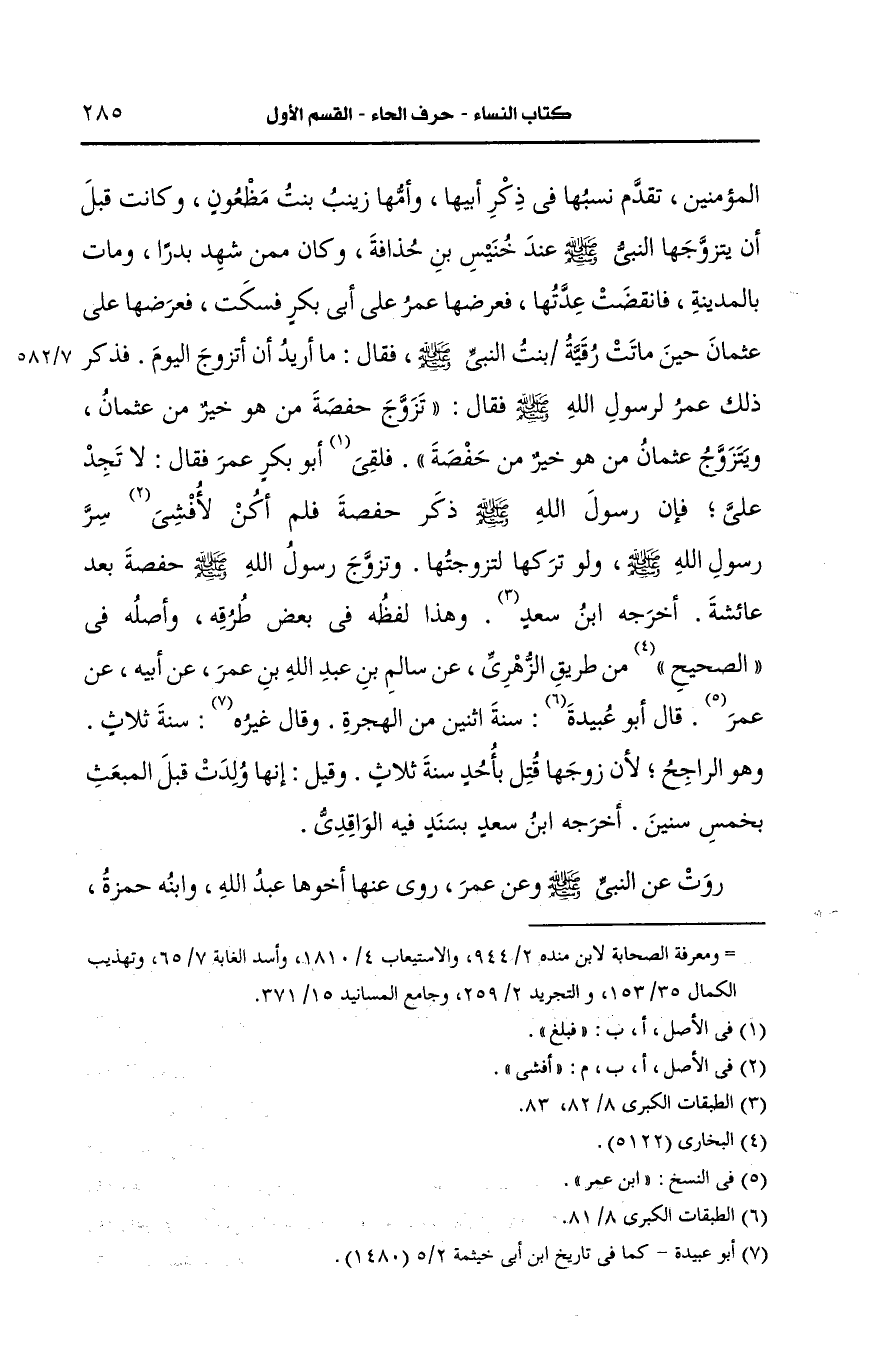 كتاب النساء - حرف الحاء - القسم الأول ٢٨٥
المؤمنين ، تقدَّم نسبُها فى ذِكْرِ أبيها ، وأمُّها زينبُ بنتُ مَظْعُونٍ ، وكانت قبلَ
أن يتزوَّجَها النبىُّ ﷺ عندَ خُنَيْسِ بنِ حُذافةَ ، وكان ممن شهِد بدرًا ، ومات
بالمدينةِ ، فانقضَتْ عِدَّتُها ، فعرضها عمرُ على أبى بكرٍ فسكَت ، فعرَضها على
عثمانَ حينَ ماتَتْ رُقَيَّةُ /بنتُ النبىِّ ﷺ ، فقال : ما أريدُ أن أتزوجَ اليومَ . فذكر ٥٨٢/٧
ذلك عمرُ لرسولِ اللهِ ﷺ فقال : « تَزَوَّجَ حفصةَ من هو خيرٌ من عثمانُ ،
ويَتَزَوَّجُ عثمانُ من هو خيرٌ من حَفْصَةَ » . فلقِىَ(١) أبو بكرٍ عمرَ فقال : لا تَجِدْ
علىَّ ؛ فإن رسولَ اللهِ ﷺ ذكَر حفصةَ فلم أكُنْ لأُفْشِىَ(٢) سِرَّ
رسولِ اللهِ ﷺ ، ولو ترَكها لتزوجتُها . وتزوَّجَ رسولُ اللهِ ﷺ حفصةَ بعد
عائشةَ . أخرَجه ابنُ سعدٍ(٣) . وهذا لفظُه فى بعض طُرُقِه ، وأصلُه فى
« الصحيحِ »(٤) من طريقِ الزُّهْرِىِّ ، عن سالمِ بنِ عبدِ اللهِ بنِ عمرَ ، عن أبيه ، عن
عمرَ(٥) . قال أبو عُبيدةَ(٦) : سنةَ اثنين من الهجرةِ . وقال غيرُه(٧) : سنةَ ثلاثٍ .
وهو الراجِحُ ؛ لأن زوجَها قُتِل بأُحُدٍ سنةَ ثلاثٍ . وقيل : إنها وُلِدَتْ قبلَ المبعَثِ
بخمسِ سنينَ . أخرَجه ابنُ سعدٍ بسَنَدٍ فيه الوَاقِدِىُّ .
روَتْ عن النبىِّ ﷺ وعن عمرَ ، روى عنها أخوها عبدُ اللهِ ، وابنُه حمزةُ ،
= ومعرفة الصحابة لابن منده ٢/ ٩٤٤، والاستيعاب ٤/ ١٨١٠، وأسد الغابة ٧/ ٦٥، وتهذيب
الكمال ٣٥/ ١٥٣، و التجريد ٢/ ٢٥٩، وجامع المسانيد ١٥/ ٣٧١.
(١) فى الأصل ، أ ، ب : « فبلغ » .
(٢) فى الأصل ، أ ، ب ، م : « أفشى » .
(٣) الطبقات الكبرى ٨/ ٨٢، ٨٣.
(٤) البخارى (٥١٢٢) .
(٥) فى النسخ : « ابن عمر » .
(٦) الطبقات الكبرى ٨/ ٨١.
(٧) أبو عبيدة - كما فى تاريخ ابن أبى خيثمة ٥/٢ (١٤٨٠) .